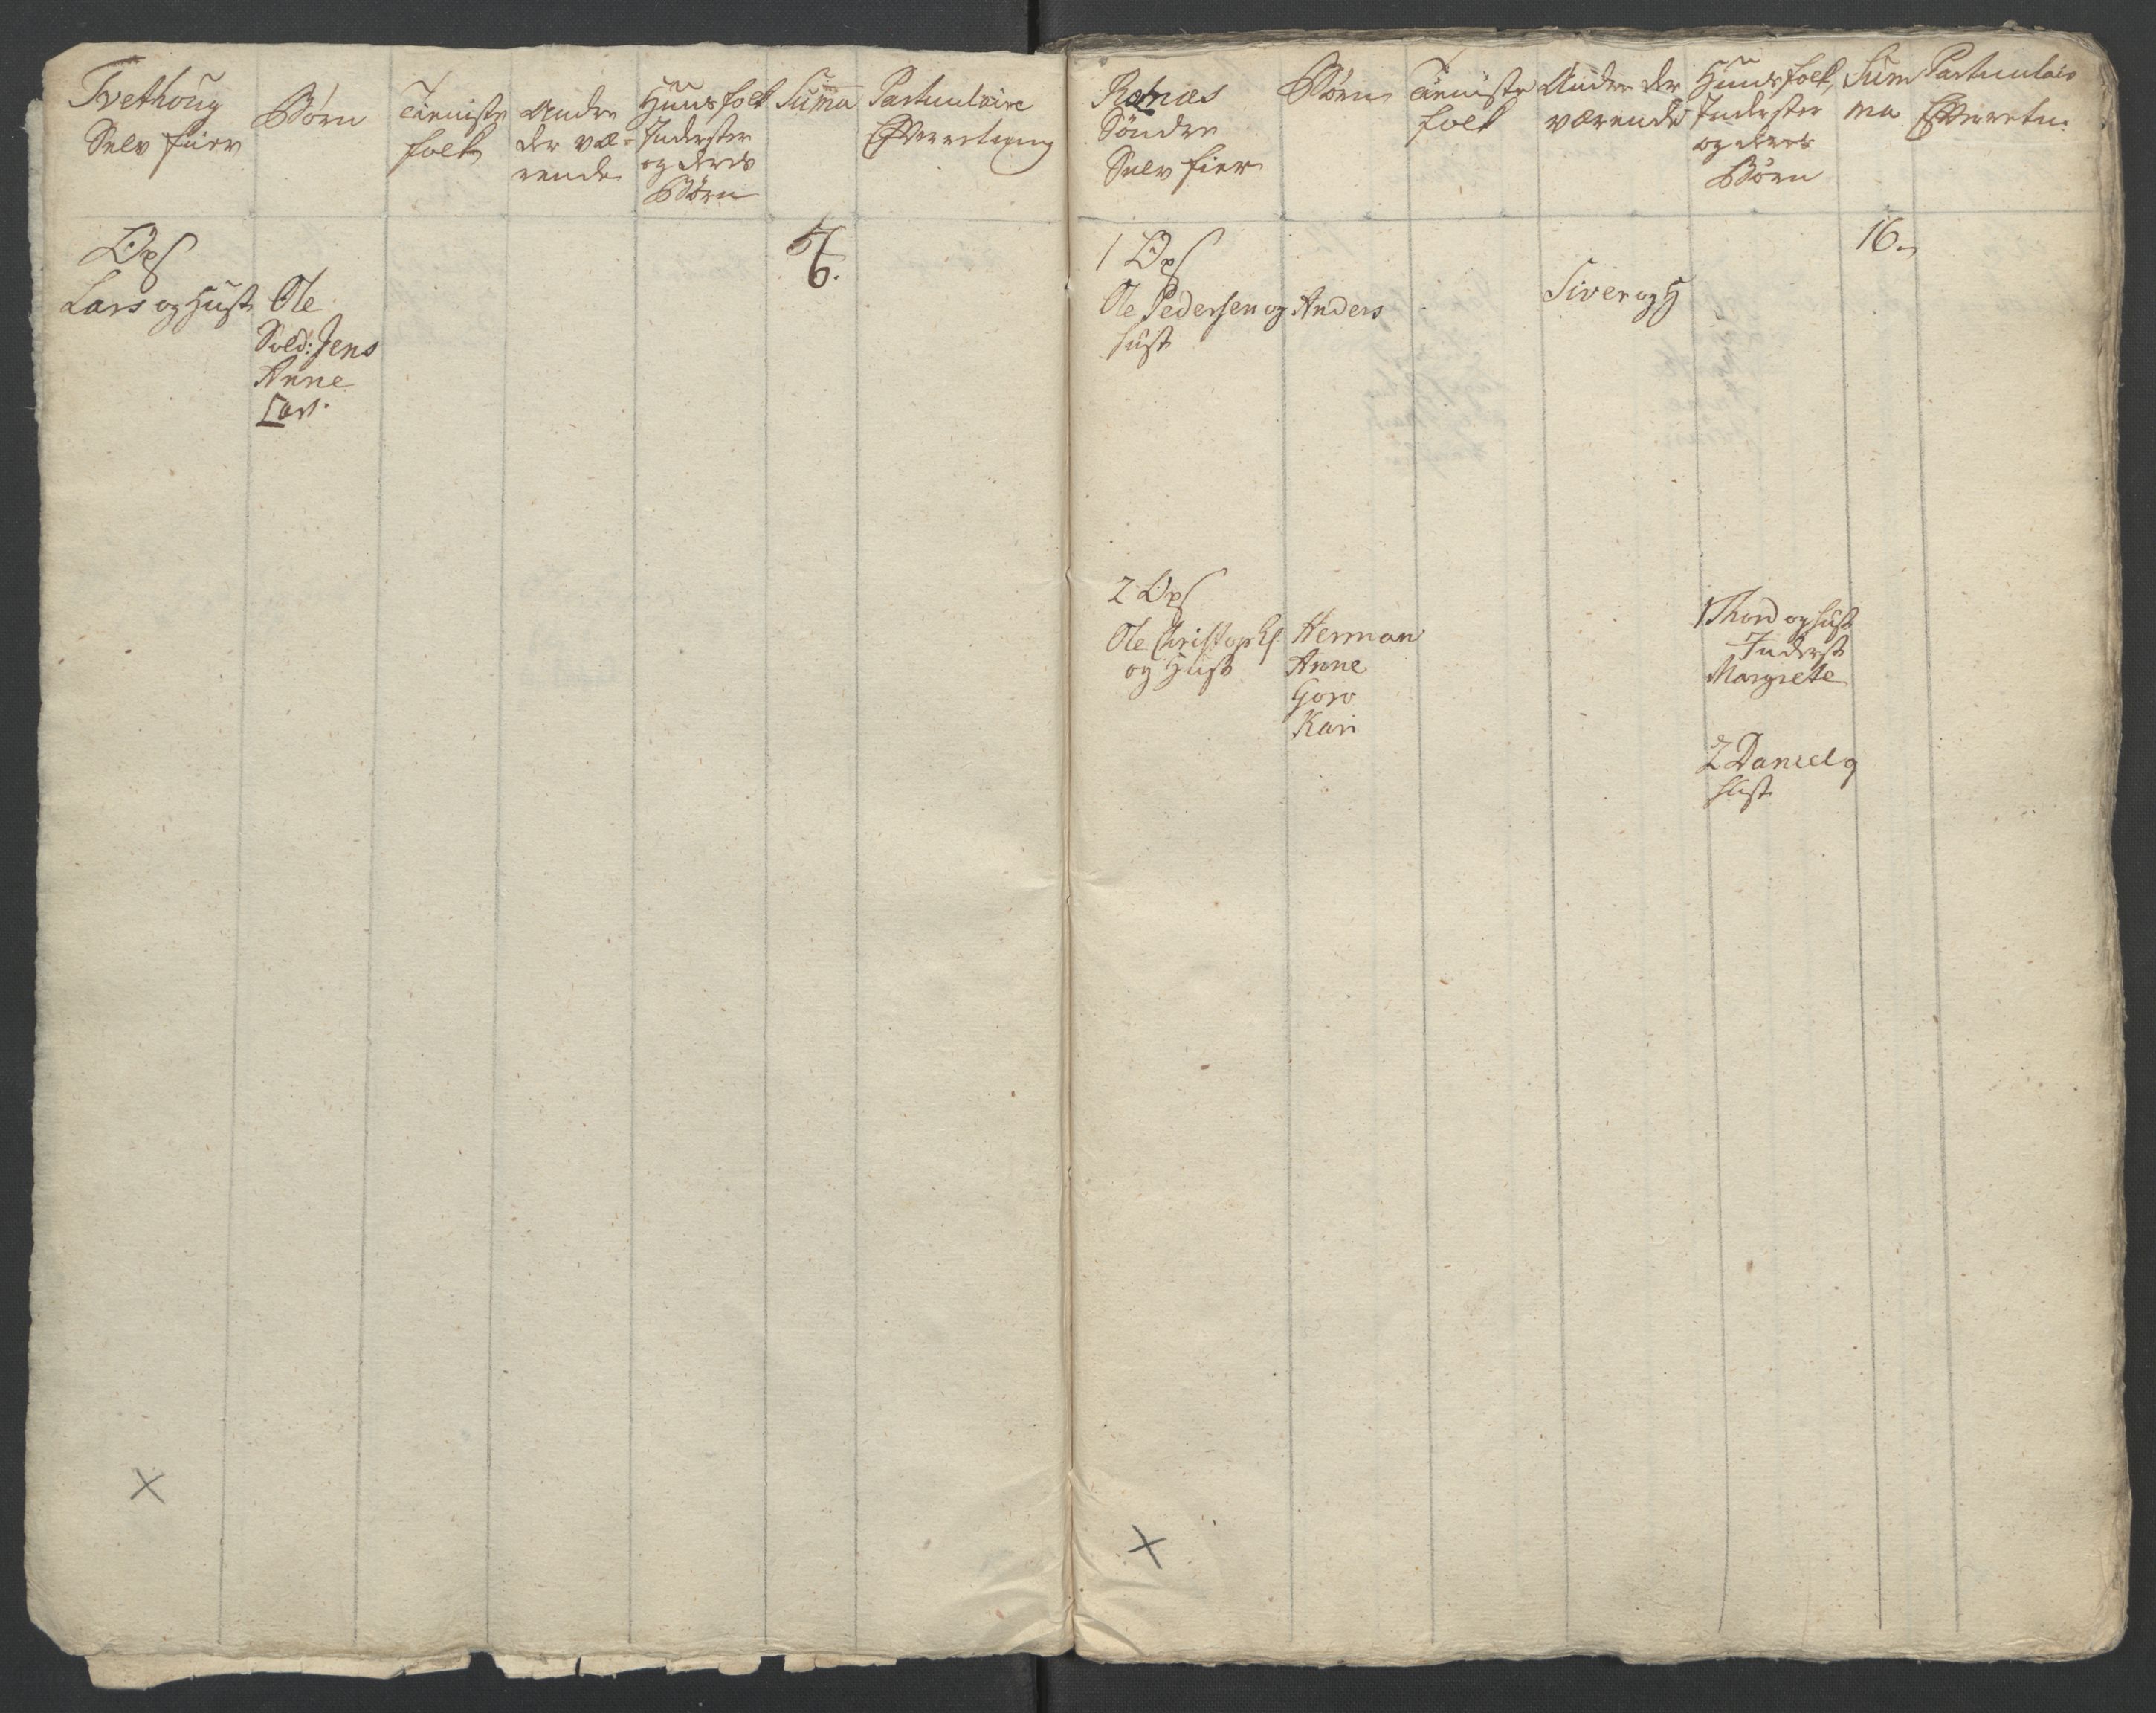 Tvethoug
Selv Eier
Børn
Tieniste
folk
Andre
der væ-
rende
Huusfolk
Inderster
og deres
Børn
Suma
Particulaire
Efterretning
Ops
Lars og Hust
Ole
Sold: Jens
Anne
Lars
6.
Ramnes
Søndre
Selv Eier
Børn
Tieniste
folk
Andre der
værende
Huusfolk,
Inderster
og deres
Børn
Sum
ma
Particulair
Efterretn:
1 Ops
Ole Pedersen og
Hust
Anders
Siver og H
16
2 Ops
Ole Christophs
og Hust
Herman
Anne
Goro
Kari
1 Thord og Hust
Inderst
Margrete
2 Daniel og
Hust